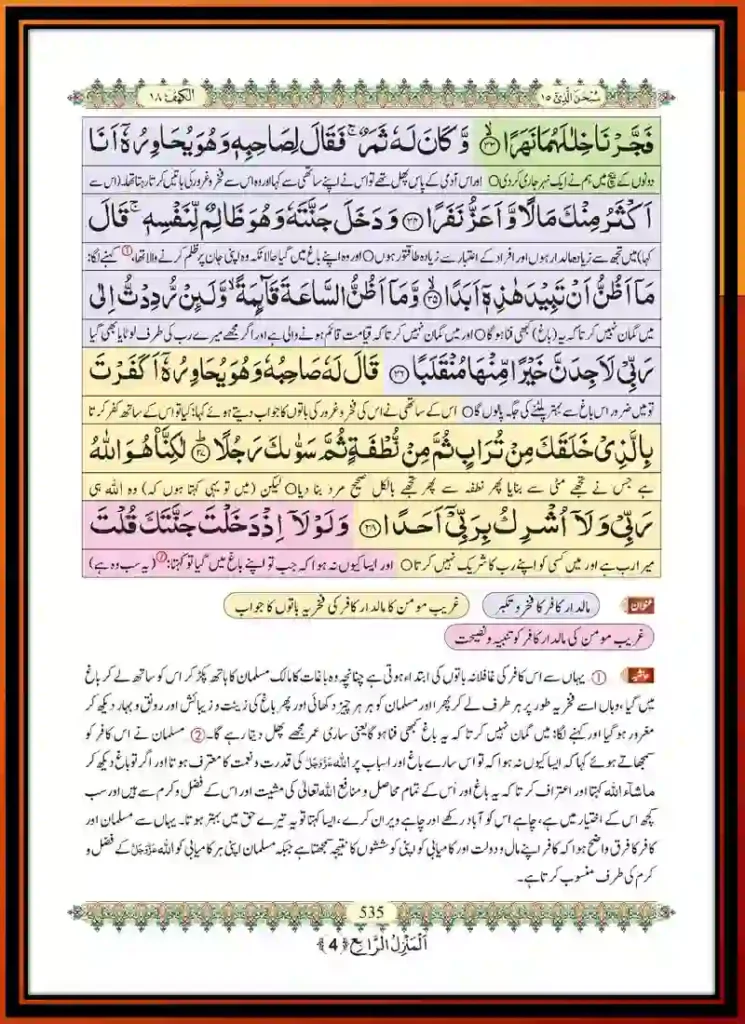 سُبْحٰنَ الَّذِیْۤ ۱۵
الْكَهْف ۱۸
فَجَّرْنَا خِلٰلَهُمَا نَهَرًا ﴿۳۳﴾ وَّ كَانَ لَهٗ ثَمَرٌ ۚ فَقَالَ لِصَاحِبِهٖ وَ هُوَ یُحَاوِرُهٗۤ اَنَا
دونوں کے بیچ میں ہم نے ایک نہر جاری کردی ○ اور اس آدمی کے پاس پھل تھے تو اس نے اپنے ساتھی سے کہا اور وہ اس سے فخر و غرور کی باتیں کرتا رہتا تھا۔ (اس سے
اَكْثَرُ مِنْكَ مَالًا وَّ اَعَزُّ نَفَرًا ﴿۳۴﴾ وَ دَخَلَ جَنَّتَهٗ وَ هُوَ ظَالِمٌ لِّنَفْسِهٖ ۚ قَالَ
کہا) میں تجھ سے زیادہ مالدار ہوں اور افراد کے اعتبار سے زیادہ طاقتور ہوں ○ اور وہ اپنے باغ میں گیا حالانکہ وہ اپنی جان پر ظلم کرنے والا تھا، ① کہنے لگا:
مَاۤ اَظُنُّ اَنْ تَبِیْدَ هٰذِهٖۤ اَبَدًا ﴿۳۵﴾ وَّ مَاۤ اَظُنُّ السَّاعَةَ قَآىٕمَةً ۙ وَّ لَىٕنْ رُّدِدْتُّ اِلٰى
میں گمان نہیں کرتا کہ یہ (باغ) کبھی فنا ہوگا ○ اور میں گمان نہیں کرتا کہ قیامت قائم ہونے والی ہے اور اگر مجھے میرے رب کی طرف لوٹایا بھی گیا
رَبِّیْ لَاَجِدَنَّ خَیْرًا مِّنْهَا مُنْقَلَبًا ﴿۳۶﴾ قَالَ لَهٗ صَاحِبُهٗ وَ هُوَ یُحَاوِرُهٗۤ اَكَفَرْتَ
تو میں ضرور اس باغ سے بہتر پلٹنے کی جگہ پالوں گا ○ اس کے ساتھی نے اس کی فخر و غرور کی باتوں کا جواب دیتے ہوئے کہا: کیا تو اس کے ساتھ کفر کرتا
بِالَّذِیْ خَلَقَكَ مِنْ تُرَابٍ ثُمَّ مِنْ نُّطْفَةٍ ثُمَّ سَوّٰىكَ رَجُلًا ﴿۳۷﴾ لٰكِنَّاۡ هُوَ اللّٰهُ
ہے جس نے تجھے مٹی سے بنایا پھر نطفہ سے پھر تجھے بالکل صحیح مرد بنا دیا ○ لیکن (میں تو یہی کہتا ہوں کہ) وہ اللہ ہی
رَبِّیْ وَ لَاۤ اُشْرِكُ بِرَبِّیْۤ اَحَدًا ﴿۳۸﴾ وَ لَوْ لَاۤ اِذْ دَخَلْتَ جَنَّتَكَ قُلْتَ
میرا رب ہے اور میں کسی کو اپنے رب کا شریک نہیں کرتا ○ اور ایسا کیوں نہ ہوا کہ جب تو اپنے باغ میں گیا تو کہتا: ② (یہ سب وہ ہے)
عنوان مالدار کافر کا فخر و تکبر غریب مومن کا مالدار کافر کی فخریہ باتوں کا جواب
غریب مومن کی مالدار کافر کو تنبیہ و نصیحت
حاشیہ ① یہاں سے اس کافر کی غافلانہ باتوں کی ابتداء ہوتی ہے چنانچہ وہ باغات کا مالک مسلمان کا ہاتھ پکڑ کر اس کو ساتھ لے کر باغ
میں گیا، وہاں اسے فخریہ طور پر ہر طرف لے کر پھرا اور مسلمان کو ہر ہر چیز دکھائی اور پھر باغ کی زینت و زیبائش اور رونق و بہار دیکھ کر
مغرور ہو گیا اور کہنے لگا: میں گمان نہیں کرتا کہ یہ باغ کبھی فنا ہوگا یعنی ساری عمر مجھے پھل دیتا رہے گا۔ ② مسلمان نے اس کافر کو
سمجھاتے ہوئے کہا کہ ایسا کیوں نہ ہوا کہ تو اس سارے باغ اور اسباب پر اللہ عزوجل کی قدرت و نعمت کا معترف ہوتا اور اگر تو باغ دیکھ کر
ماشاء اللہ کہتا اور اعتراف کرتا کہ یہ باغ اور اس کے تمام محاصل و منافع اللہ تعالیٰ کی مشیت اور اس کے فضل و کرم سے ہیں اور سب
کچھ اس کے اختیار میں ہے، چاہے اس کو آباد رکھے اور چاہے ویران کرے، ایسا کہتا تو یہ تیرے حق میں بہتر ہوتا۔ یہاں سے مسلمان اور
کافر کا فرق واضح ہوا کہ کافر اپنے مال و دولت اور کامیابی کو اپنی کوششوں کا نتیجہ سمجھتا ہے جبکہ مسلمان اپنی ہر کامیابی کو اللہ عزوجل کے فضل و
کرم کی طرف منسوب کرتا ہے۔
535
اَلْمَنْزِلُ الرَّابِع ﴿4﴾